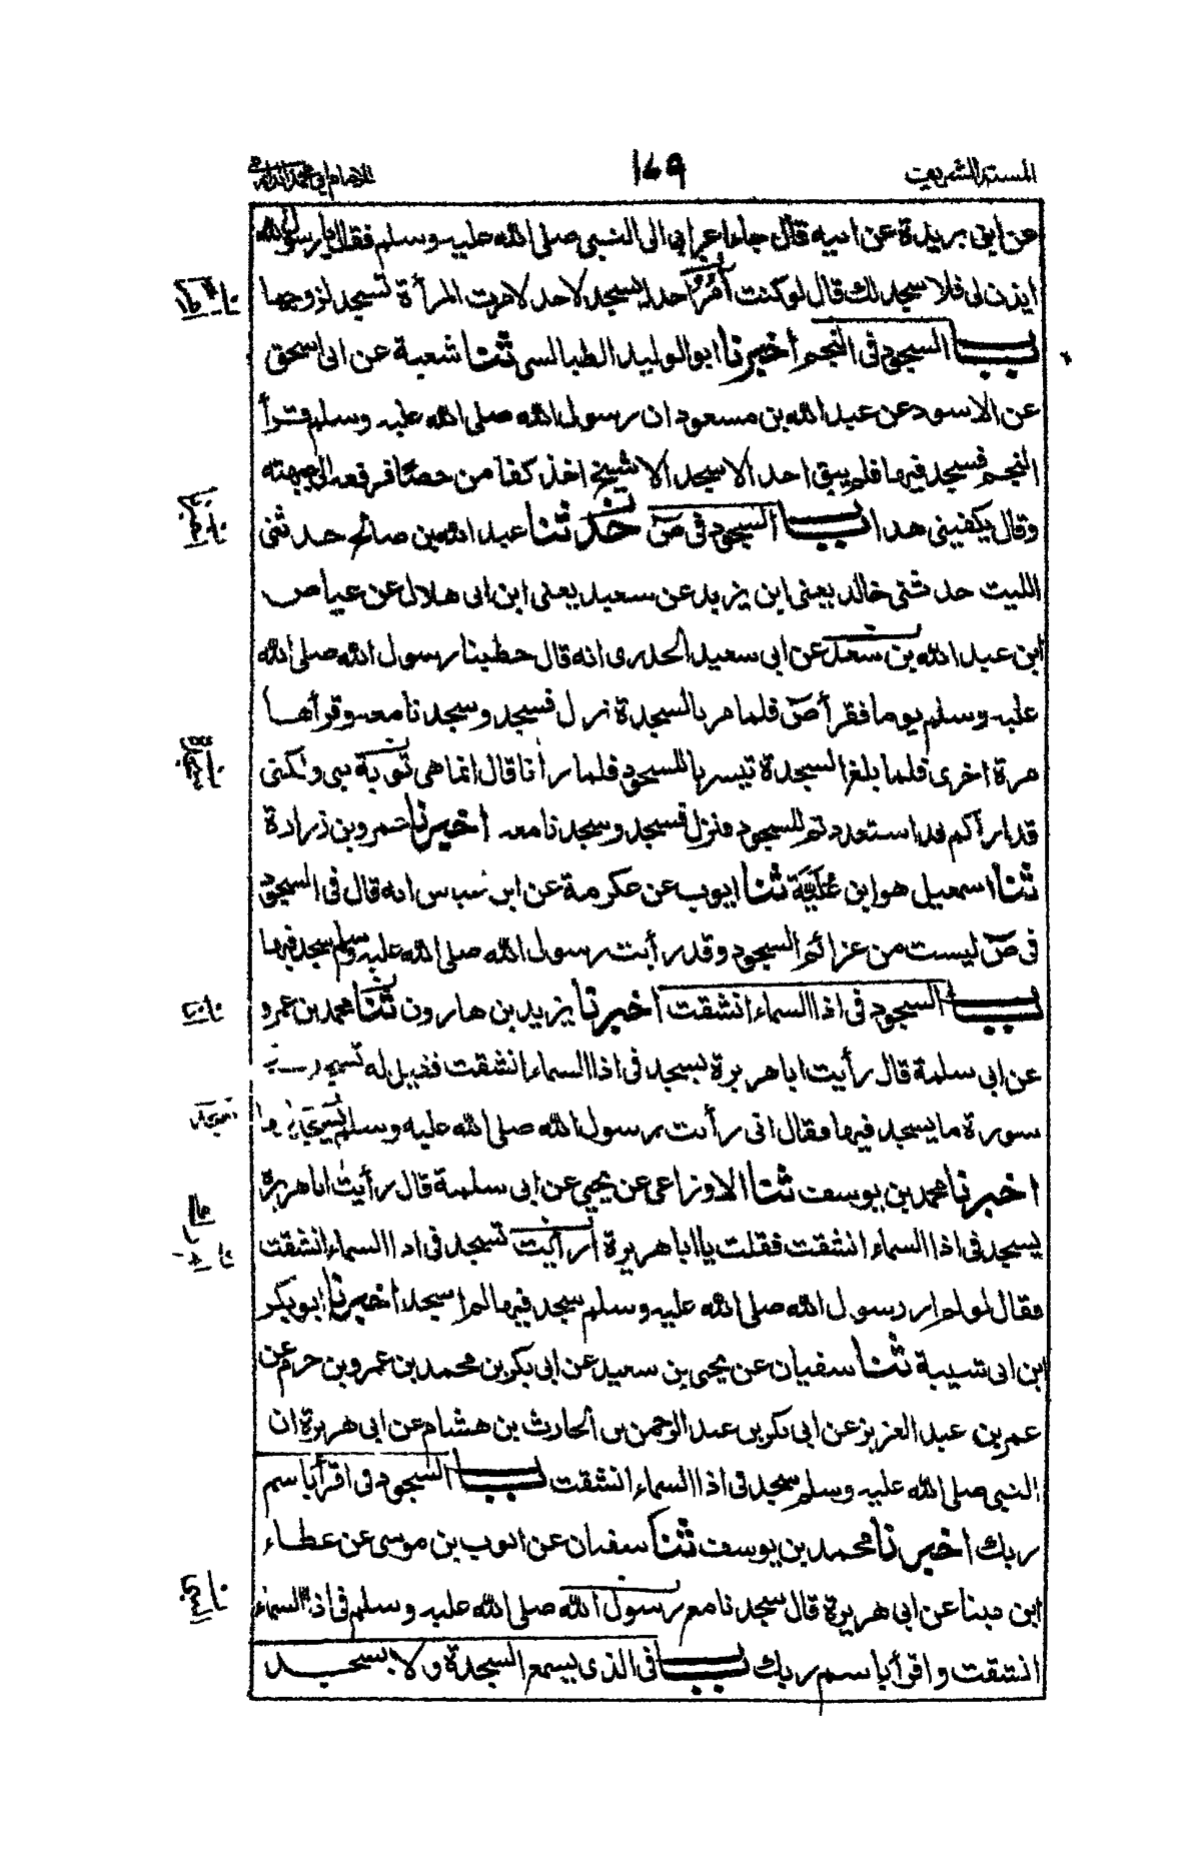 المسند الشريف
١٤٩
للامام ابي محمد الدارمي
عن ابن بريدة عن ابيه قال جاء اعرابي الى النبي صلى الله عليه وسلم فقال يا رسول الله
ايذن لى فلا سجد لك قال لو كنت آمُرُ احدا يسجد لاحد لامرت المرأة تسجد لزوجها
باب السجود فى النجم اخبرنا ابو الوليد الطيالسى ثنا شعبة عن ابى اسحق
عن الاسود عن عبد الله بن مسعود ان رسول الله صلى الله عليه وسلم قرأ
النجم فسجد فيها فلم يبق احد الا سجد الا شيخ اخذ كفا من حصًا فرفعه الى جبهته
وقال يكفينى هذا باب السجود فى صٓ حدثنا عبد الله بن صالح حدثنى
الليث حدثنى خالد يعنى ابن يزيد عن سعيد يعنى ابن ابى هلال عن عياض
ابن عبد الله بن سعد عن ابى سعيد الخدرى انه قال خطبنا رسول الله صلى الله
عليه وسلم يوما فقرأ صٓ فلما مر بالسجدة نزل فسجد وسجدنا معه وقرأها
مرة اخرى فلما بلغ السجدة تيسرنا للسجود فلما رآنا قال انما هى توبة نبى ولكنى
قد اراكم قد استعددتم للسجود فنزل فسجد وسجدنا معه اخبرنا عمرو بن زرارة
ثنا اسمعيل هو ابن عُلَيَّة ثنا ايوب عن عكرمة عن ابن عباس انه قال فى السجود
فى صٓ ليست من عزائم السجود وقد رأيت رسول الله صلى الله عليه وسلم سجد فيها
باب السجود فى اذا السماء انشقت اخبرنا يزيد بن هارون ثنا محمد بن عمرو
عن ابى سلمة قال رأيت ابا هريرة يسجد فى اذا السماء انشقت فقيل له تسجد فى
سورة ما يسجد فيها فقال انى رأيت رسول الله صلى الله عليه وسلم يسجد فيها
اخبرنا محمد بن يوسف ثنا الاوزاعى عن يحيى عن ابى سلمة قال رأيت ابا هريرة
يسجد فى اذا السماء انشقت فقلت يا ابا هريرة أرأيت تسجد فى اذا السماء انشقت
فقال لو لم ار رسول الله صلى الله عليه وسلم سجد فيها لم اسجد اخبرنا ابو بكر
ابن ابى شيبة ثنا سفيان عن يحيى بن سعيد عن ابى بكر بن محمد بن عمرو بن حزم عن
عمر بن عبد العزيز عن ابى بكر بن عبد الرحمن بن الحارث بن هشام عن ابى هريرة ان
النبى صلى الله عليه وسلم سجد فى اذا السماء انشقت باب السجود فى اقرأ باسم
ربك اخبرنا محمد بن يوسف ثنا سفيان عن ايوب بن موسى عن عطاء
ابن مينا عن ابى هريرة قال سجدنا مع رسول الله صلى الله عليه وسلم فى اذا السماء
انشقت واقرأ باسم ربك باب فى الذى يسمع السجدة ولا يسجد